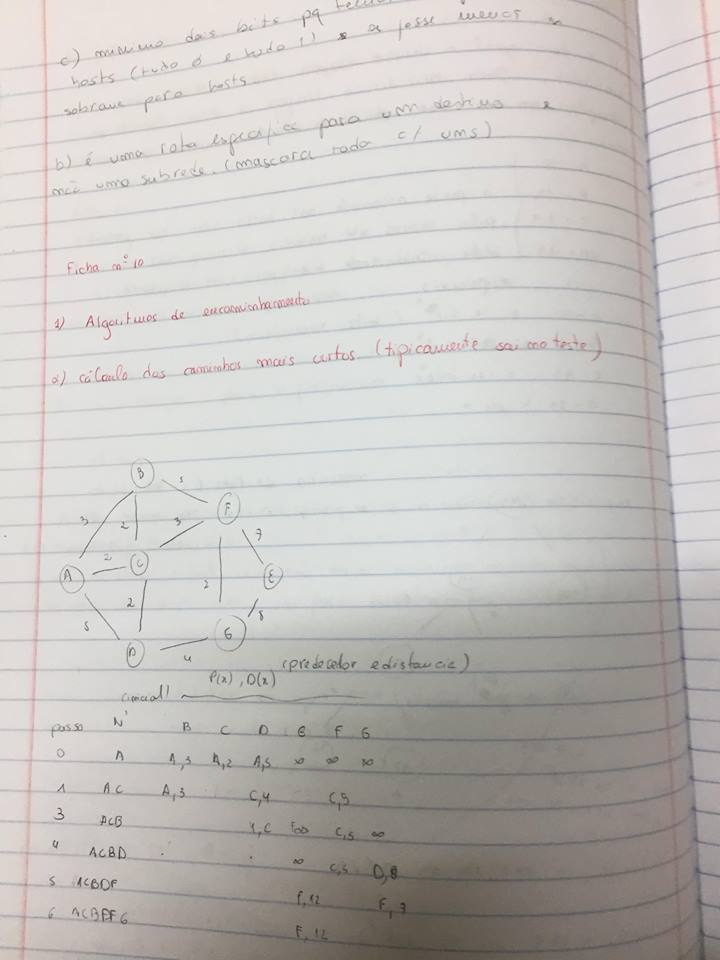 c) minimo dois bits pq
hosts (tudo 0 e tudo 1) e a fosse menos
sobrava para hosts
b) é uma rota especifica para um destino e
não uma subrede. (mascara toda c/ ums)
Ficha nº 10
1) Algoritmos de encaminhamento
a) cálculo dos caminhos mais curtos (tipicamente sai no teste)
B
5
F
3
2
3
7
A
2
C
E
5
2
2
8
D
4
G
(predecesor e distancia)
P(x), D(x)
(inicial)
passo N' B C D E F G
0 A A,3 A,2 A,5 ∞ ∞ ∞
1 AC A,3 C,4 C,5
3 ACB 4,C ∞ C,5 ∞
4 ACBD . . ∞ C,5 D,8
5 ACBDF F,12 F,7
6 ACBDFG F,12